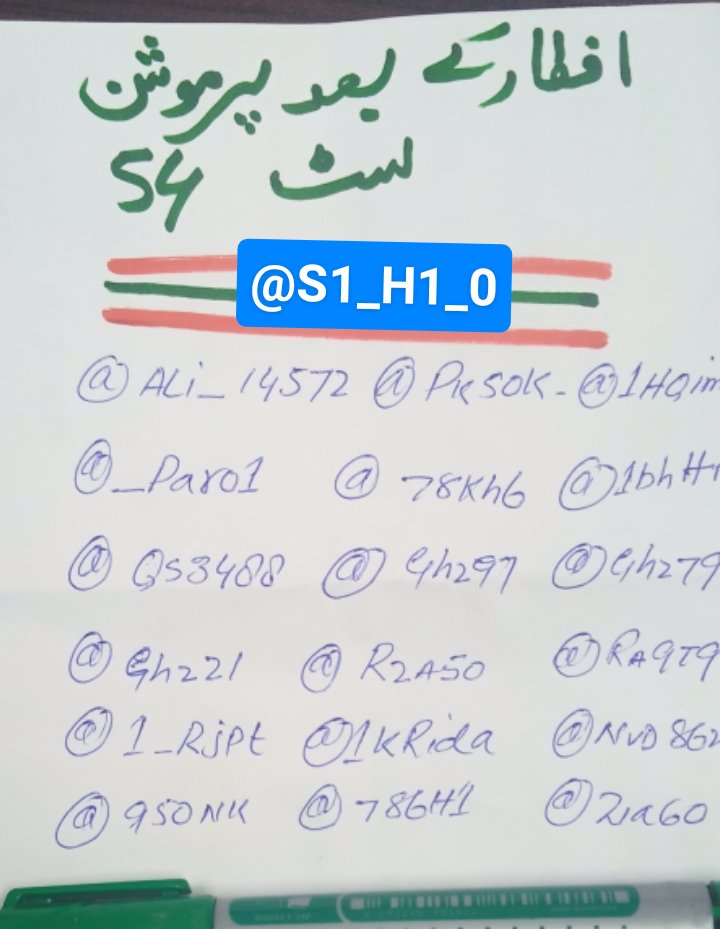 افطار کے بعد پرموشن
لسٹ 54
@S1_H1_0
@ALi_14572 @PK50K_ @1HQim
@_Paro1 @78Kh6 @1bhH
@QS3488 @Ghz97 @Ghz79
@Ghz21 @RZA50 @RA9T9
@1_RjPt @1KRida @NVD862
@950NK @786H1 @Zia60